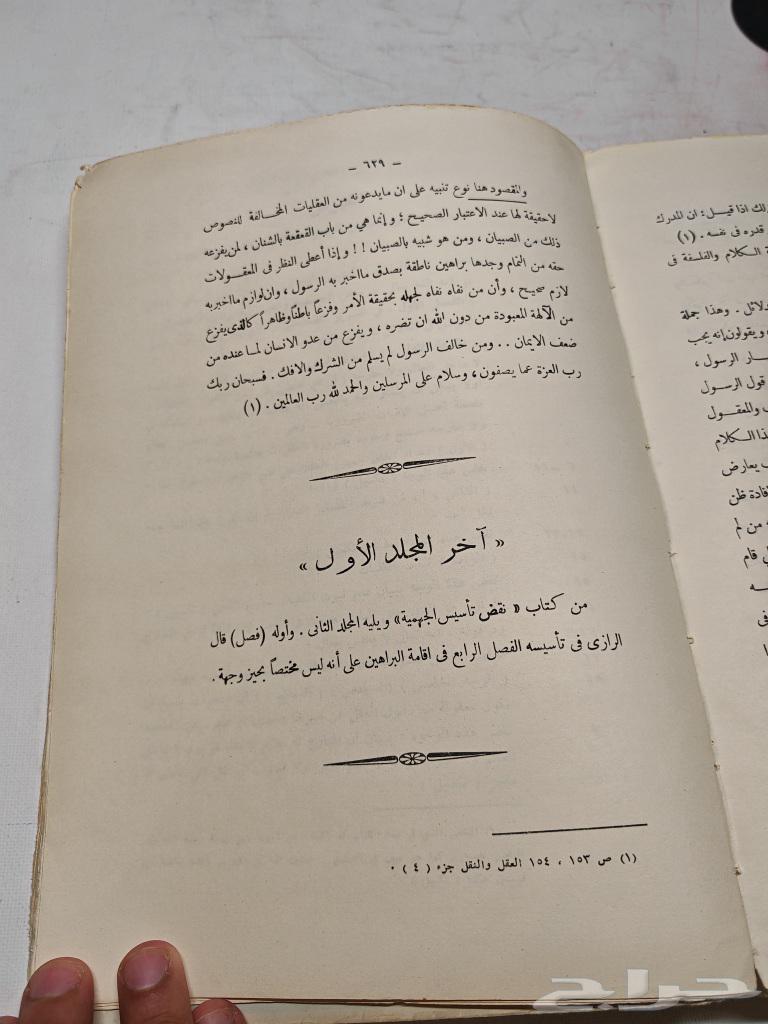 - ٦٢٩ -
والمقصود هنا نوع تنبيه على ان مايدعونه من العقليات المخالفة للنصوص
لاحقيقة لها عند الاعتبار الصحيح ؛ وإنما هي من باب القعقعة بالشنان ، لمن يفزعه
ذلك من الصبيان ، ومن هو شبيه بالصبيان !! وإذا أعطى النظر فى المعقولات
حقه من التمام وجدها براهين ناطقة بصدق مااخبر به الرسول ، وان لوازم مااخبر به
لازم صحيح ، وأن من نفاه نفاه لجهله بحقيقة الأمر وفزعاً باطناً وظاهراً كالذى يفزع
من الآلهة المعبودة من دون الله ان تضره ، ويفزع من عدو الانسان لما عنده من
ضعف الايمان .. ومن خالف الرسول لم يسلم من الشرك والافك . فسبحان ربك
رب العزة عما يصفون ، وسلام على المرسلين والحمد لله رب العالمين . (١)
« آخر المجلد الأول »
من كتاب « نقض تأسيس الجهمية » ويليه المجلد الثانى . وأوله (فصل) قال
الرازى فى تأسيسه الفصل الرابع فى اقامة البراهين على أنه ليس مختصاً بحيز وجهة .
(١) ص ١٥٣ ، ١٥٤ العقل والنقل جزء ( ٤ ) .
لك اذا قيل : ان المدرك
قدره فى نفسه . (١)
ة الكلام والفلسفة فى
دلائل . وهذا جملة
ويقولون إنه يجب
ـار الرسول ،
قول الرسول
والمعقول
ـذا الكلام
ب يعارض
فادة ظن
ه من لم
ي قام
ـه
فى
حراج